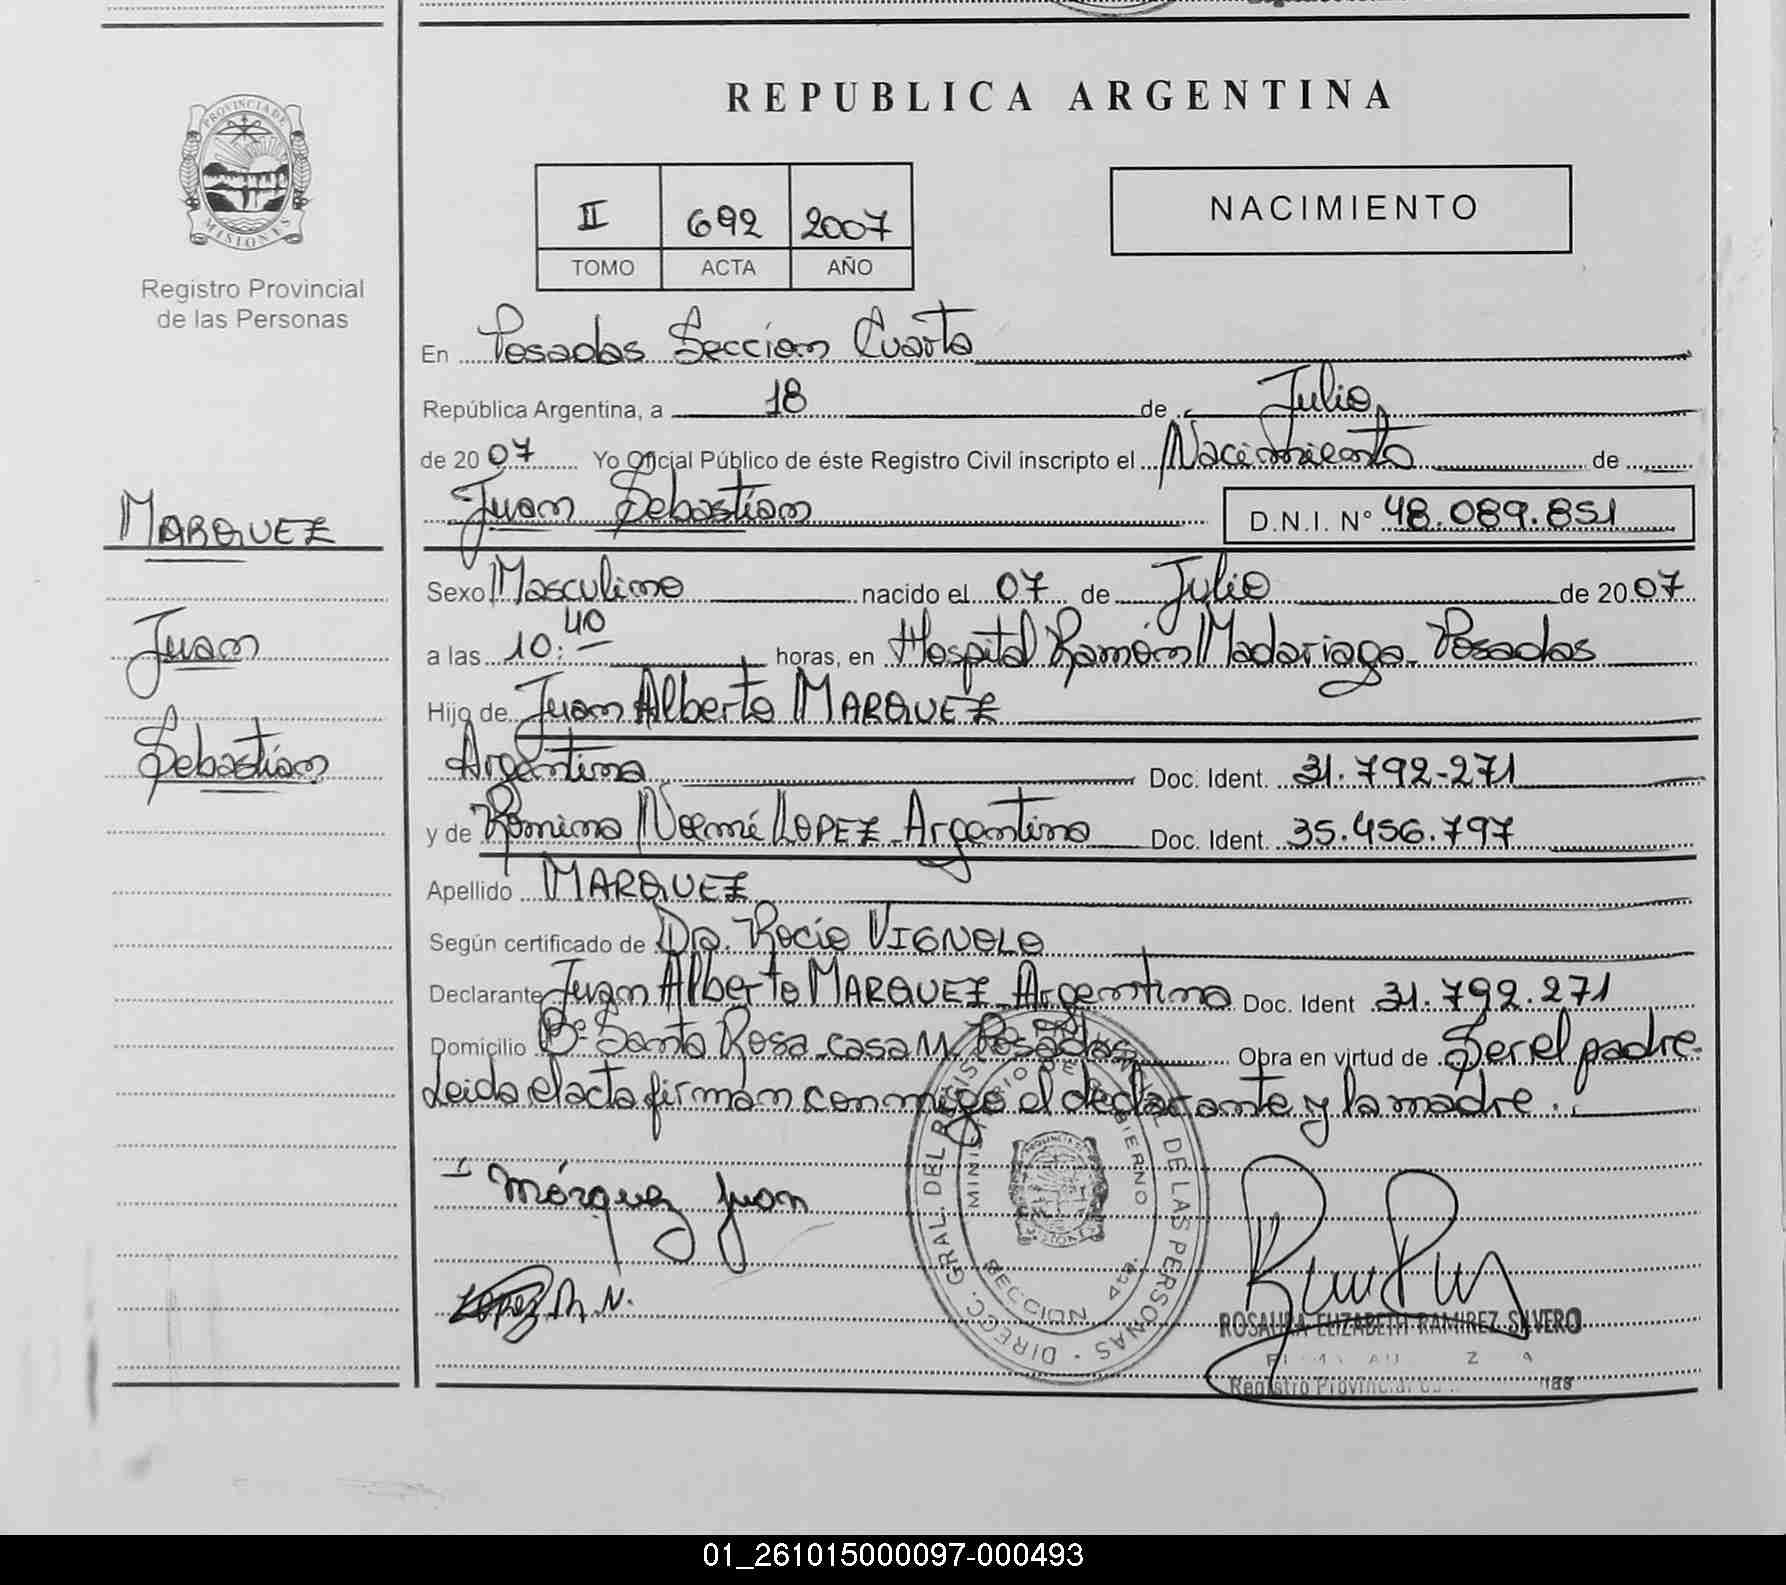 REPUBLICA ARGENTINA
PROVINCIA DE
MISIONES
Registro Provincial
de las Personas
II 692 2007
TOMO ACTA AÑO
NACIMIENTO
En Posadas Sección Cuarta
República Argentina, a 18 de Julio
de 2007 Yo Oficial Público de éste Registro Civil inscripto el Nacimiento de
Juan Sebastián D.N.I. N° 48.089.851
MARQUEZ
Juan
Sebastián
Sexo Masculino nacido el 07 de Julio de 2007
a las 10:40 horas, en Hospital Ramón Madariaga - Posadas
Hijo de Juan Alberto MARQUEZ
Argentina Doc. Ident. 31.792-271
y de Romina Noemí LOPEZ - Argentina Doc. Ident. 35.456.797
Apellido MARQUEZ
Según certificado de Dra. Rocío VIGNOLO
Declarante Juan Alberto MARQUEZ - Argentina Doc. Ident 31.792.271
Domicilio B° Santa Rosa - casa Posadas Obra en virtud de Ser el padre.
Leida el acta firman conmigo el declarante y la madre.
Márquez Juan
Lopez R. N.
DIRECC. GRAL. DEL DE LAS PERSONAS
MINISTERIO DE GOBIERNO
SECCION 4ta.
ROSAURA ELIZABETH RAMIREZ SILVERO
Registro Provincial
01_261015000097-000493